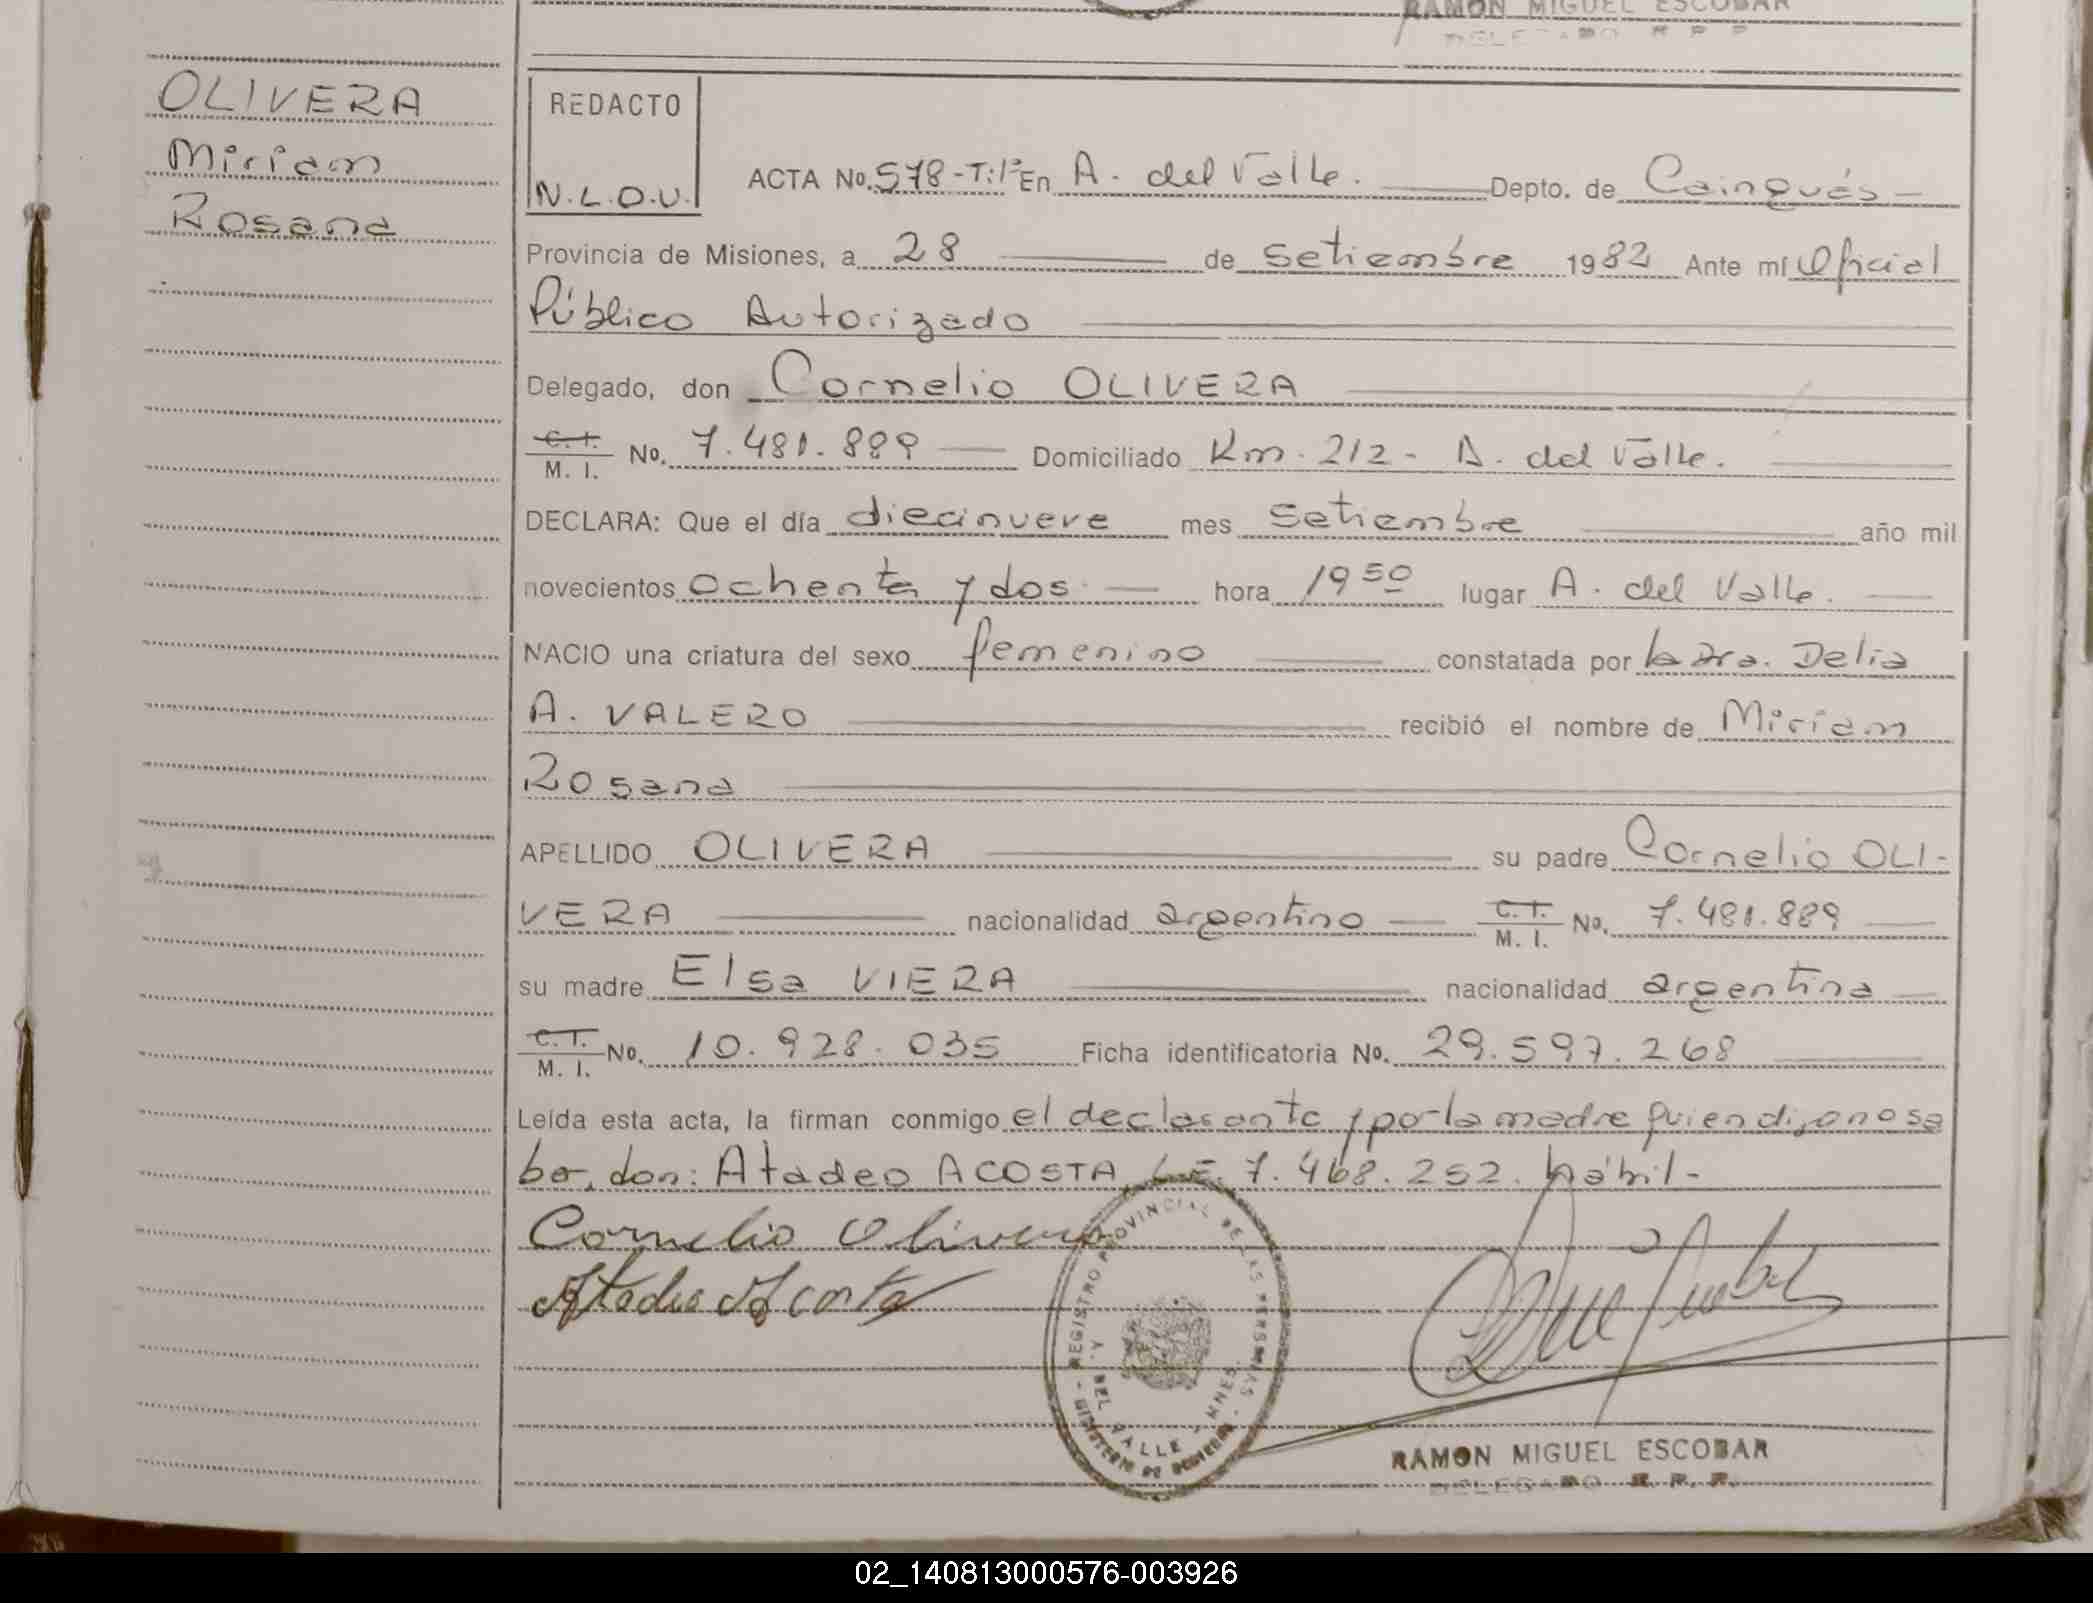 RAMON MIGUEL ESCOBAR
DELEGADO R. P. P.
OLIVERA
Miriam
Rosana
REDACTO
N.L.O.U.
ACTA No. 578-T:1º En A. del Valle. Depto. de Cainguás-
Provincia de Misiones, a 28 de setiembre 1982 Ante mí Oficial
Público Autorizado
Delegado, don Cornelio OLIVERA
C. I. M. I. No. 7.481.889 Domiciliado Km. 212- A. del Valle.
DECLARA: Que el día diecinueve mes setiembre año mil
novecientos ochenta y dos hora 19 50 lugar A. del Valle.
NACIO una criatura del sexo femenino constatada por la Dra. Delia
A. VALERO recibió el nombre de Miriam
Rosana
APELLIDO OLIVERA su padre Cornelio OLI-
VERA nacionalidad argentino C. I. M. I. No. 7.481.889
su madre Elsa VIERA nacionalidad argentina
C. I. M. I. No. 10.928.035 Ficha identificatoria No. 29.597.268
Leída esta acta, la firman conmigo el declarante y por la madre quien dijo no sa
ber, don: Atadeo ACOSTA, L.E. 7.468.252. hábil-
Cornelio Olivera
Atadeo Acosta
REGISTRO PROVINCIAL DE LAS PERSONAS
DEL VALLE - MNES.
MINISTERIO DE GOBIERNO
RAMON MIGUEL ESCOBAR
DELEGADO R. P. P.
02_140813000576-003926